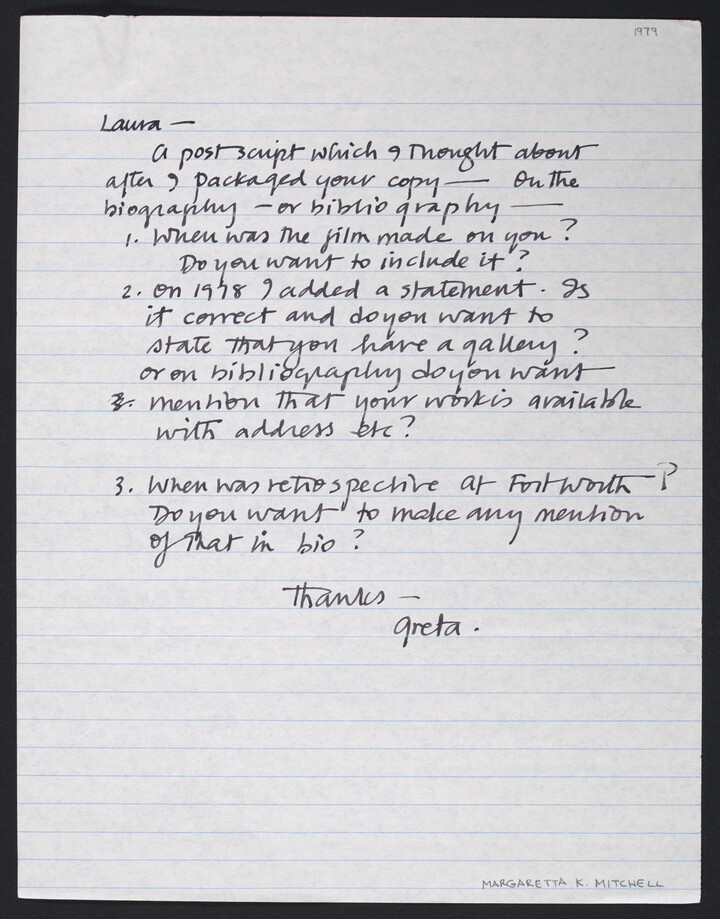 1979
Laura —
A postscript which I thought about
after I packaged your copy — On the
biography — or bibliography —
1. When was the film made on you?
Do you want to include it?
2. On 1978 I added a statement. Is
it correct and do you want to
state that you have a gallery?
or on bibliography do you want
mention that your work is available
with address etc?
3. When was retrospective at Fort Worth — ?
Do you want to make any mention
of that in bio?
Thanks —
Greta.
MARGARETTA K. MITCHELL